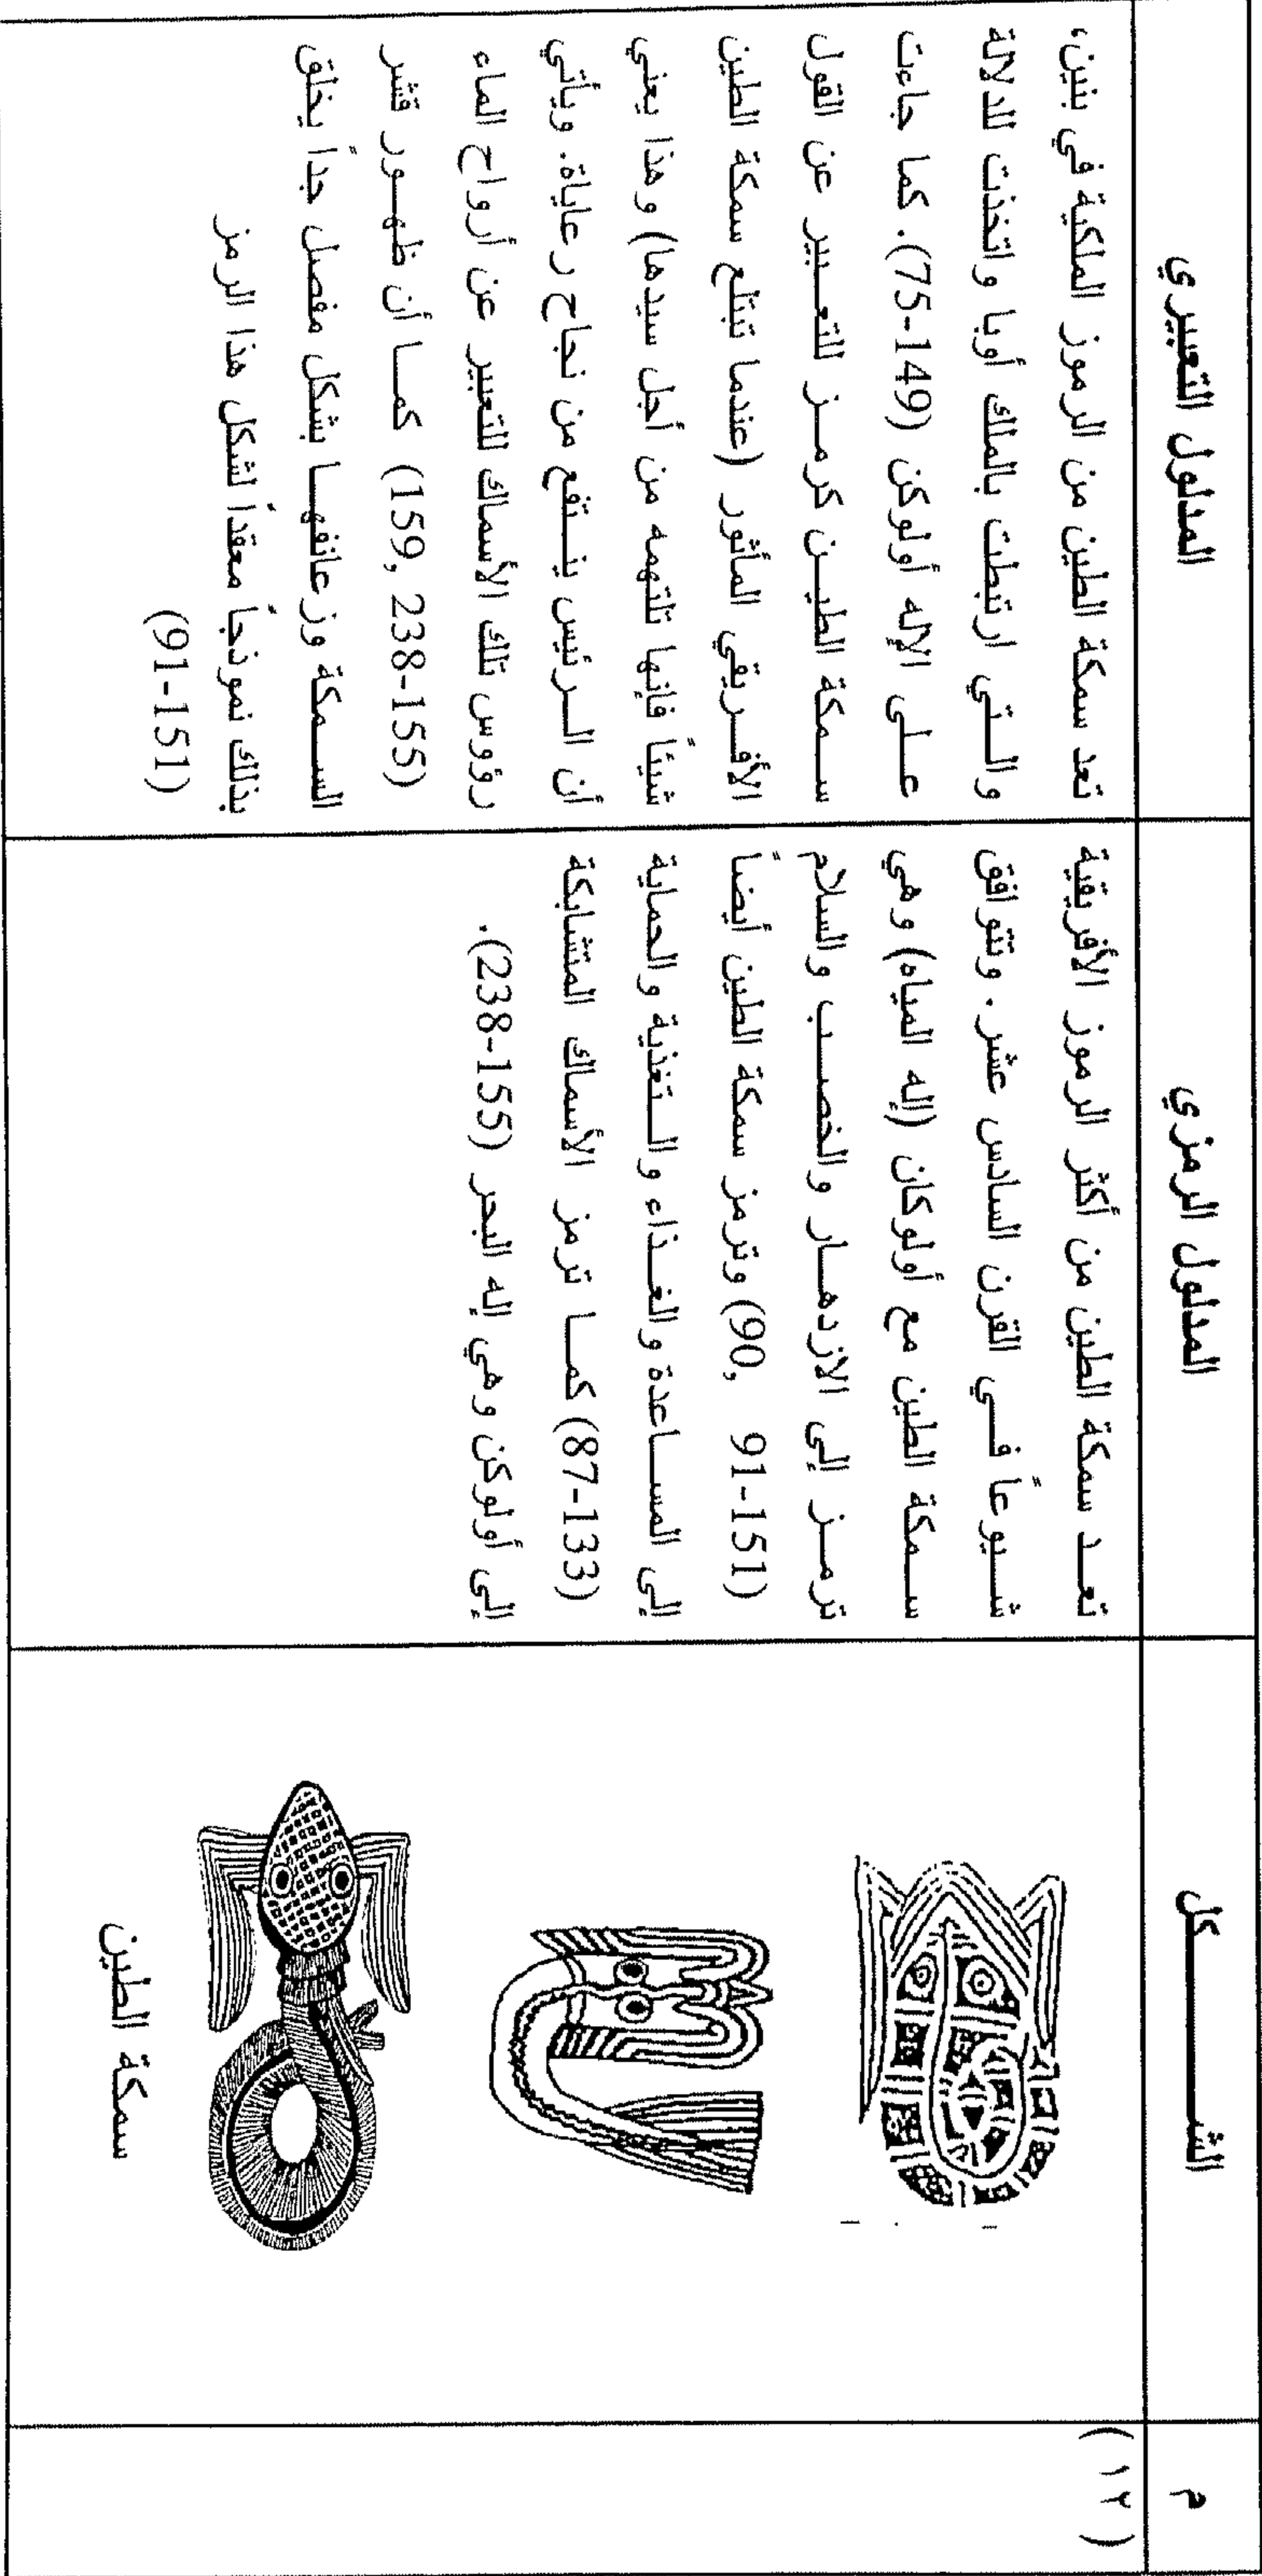 م
الشـــــــكل
المدلول الرمزي
المدلول التعبيري
( ١٢ )
سمكة الطين
تعـــد سمكة الطين من أكثر الرموز الأفريقية
شـــيوعاً فـــي القرن السادس عشر. وتتوافق
ســـمكة الطين مع أولوكان (إله المياه) وهي
ترمـــز إلى الازدهـــار والخصـــب والسلام
(90, 91-151) وترمز سمكة الطين أيضاً
إلى المســـاعدة والغـــذاء والـــتغذية والحماية
(87-133) كمـــا ترمز الأسماك المتشابكة
إلى أولوكن وهي إله البحر (238-155).
تعد سمكة الطين من الرموز الملكية في بنين،
والـــتي ارتبطت بالملك أوبا واتخذت للدلالة
عـــلى الإله أولوكن (75-149). كما جاءت
ســـمكة الطيـــن كرمـــز للتعـــبير عن القول
الأفـــريقي المأثور (عندما تبتلع سمكة الطين
شيئاً فإنها تلتهمه من أجل سيدها) وهذا يعني
أن الـــرئيس ينـــتفع من نجاح رعاياة. ويأتي
رؤوس تلك الأسماك للتعبير عن أرواح الماء
(159, 238-155) كمـــا أن ظهـــور قشر
الســـمكة وزعانفهـــا بشكل مفصل جداً يخلق
بذلك نموذجاً معقداً لشكل هذا الرمز
(91-151)